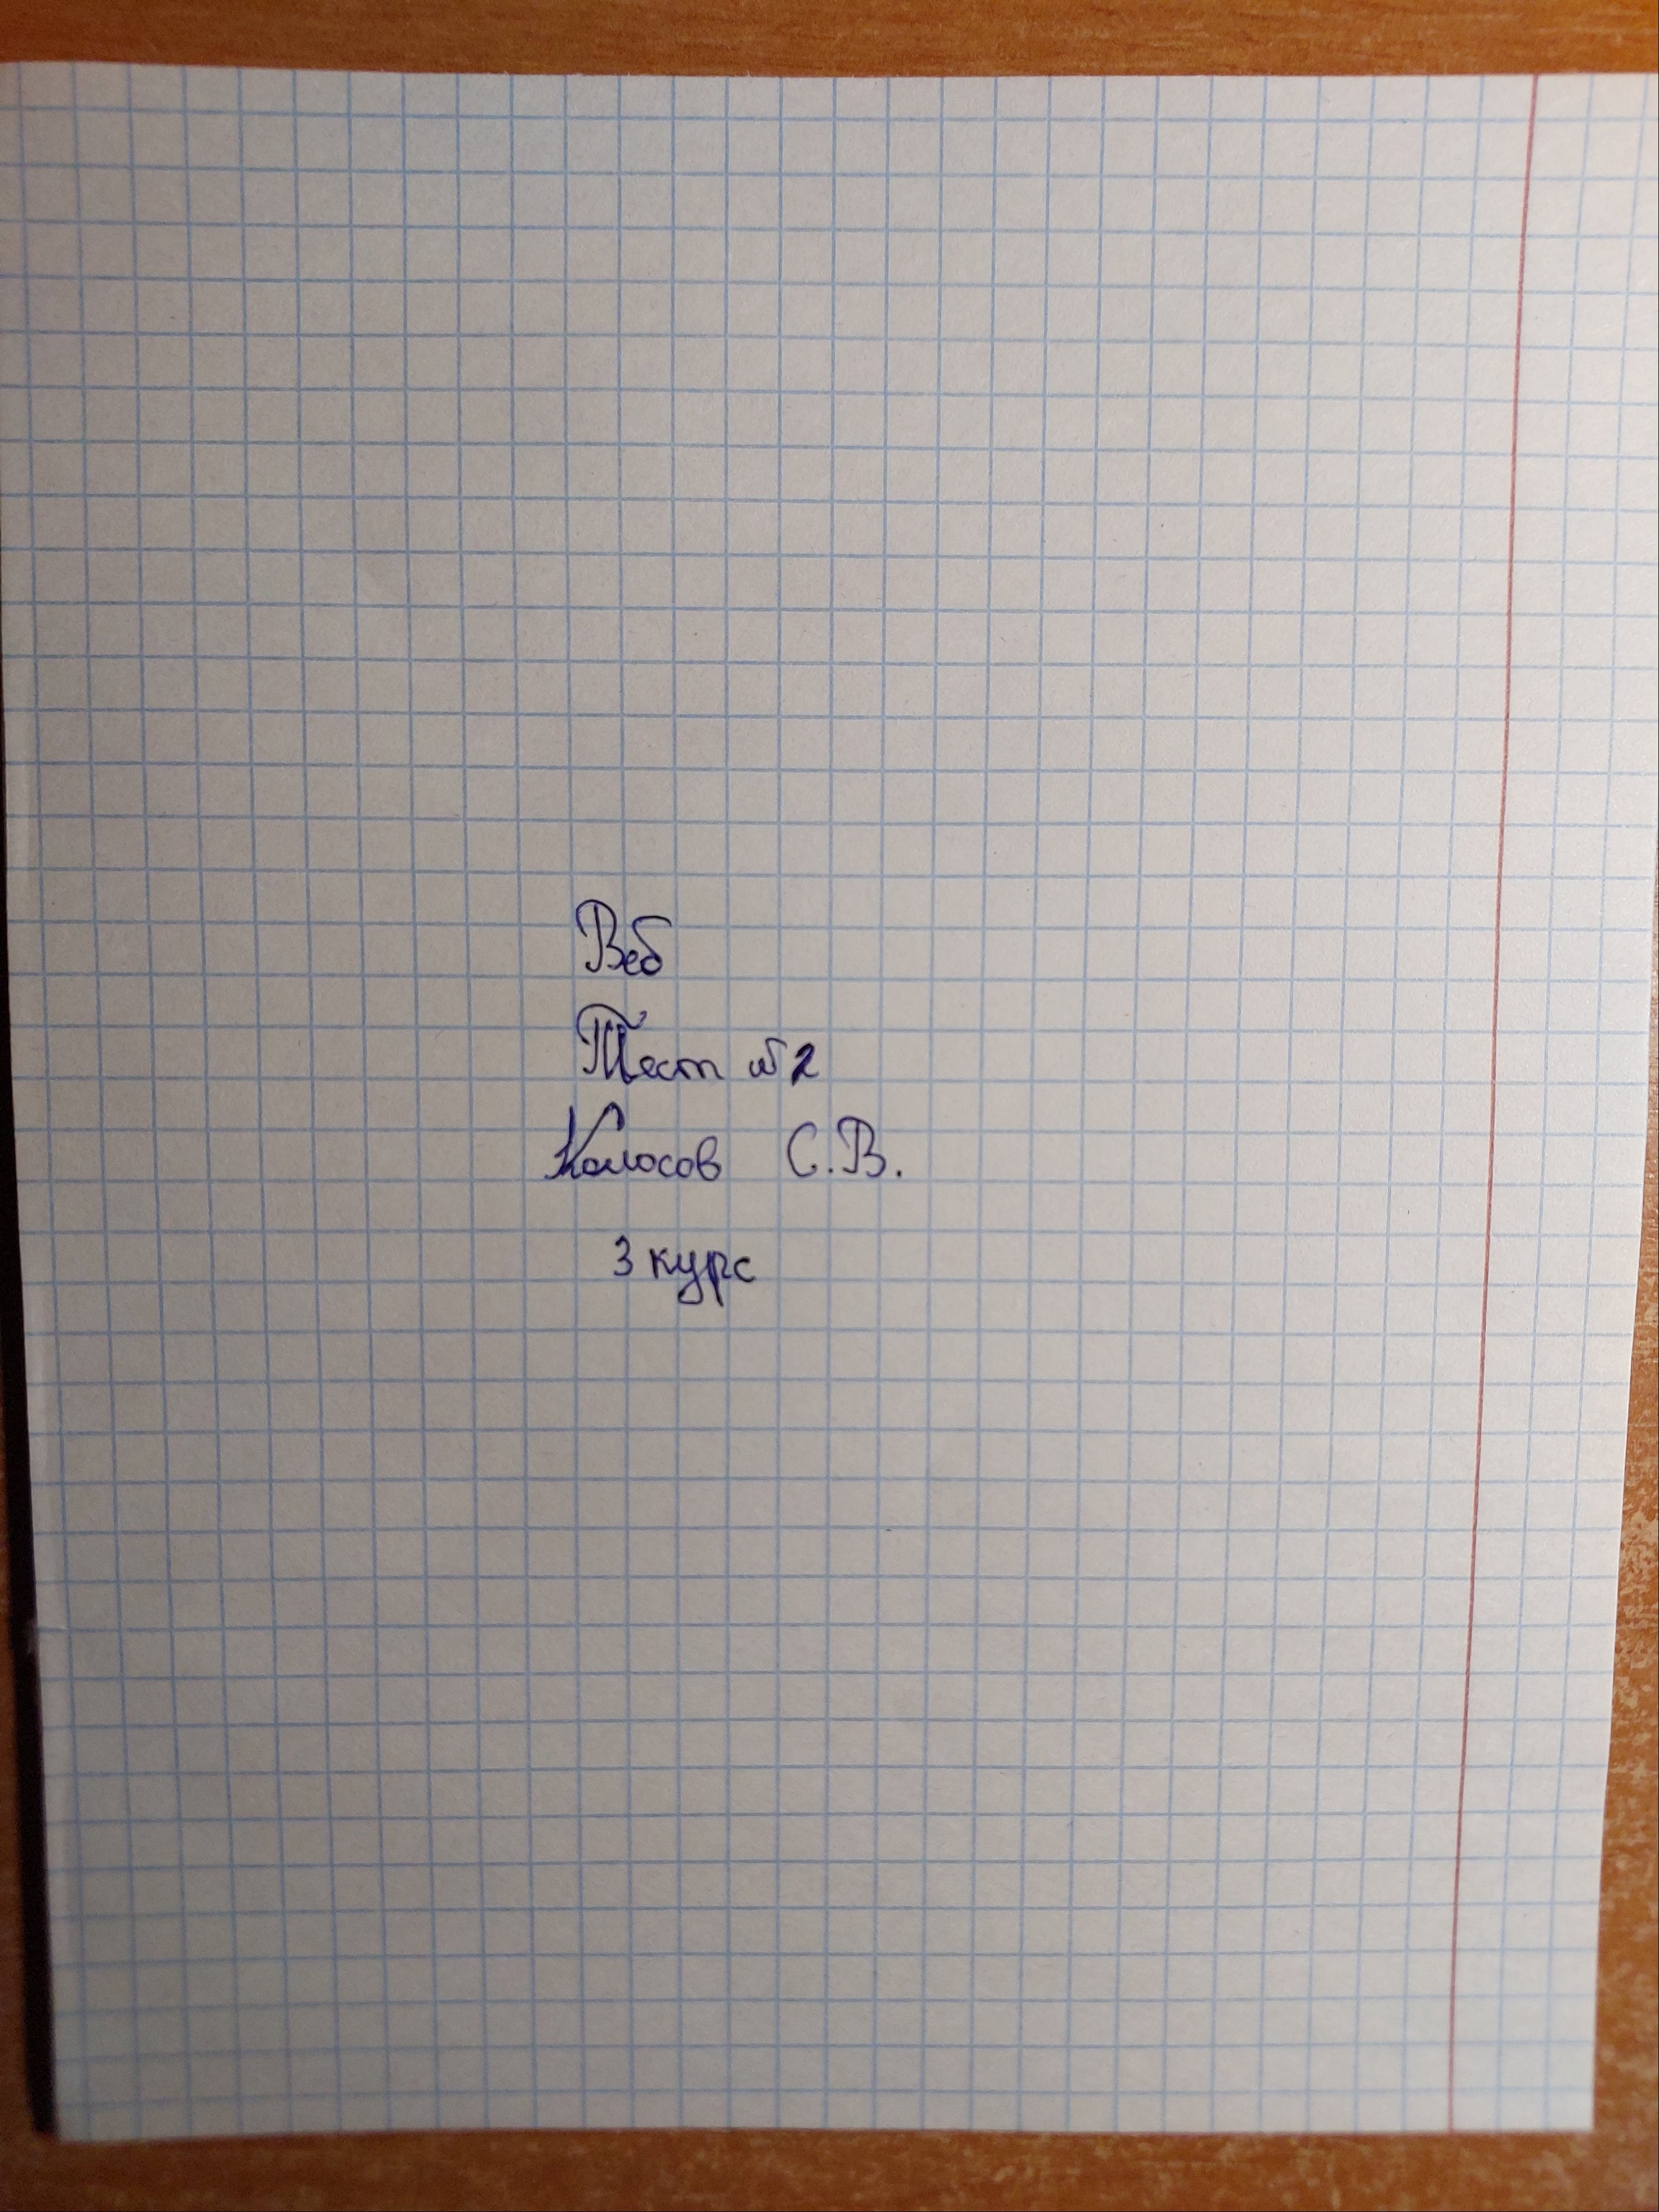 Веб
Тест №2
Колосов С.В.
3 курс